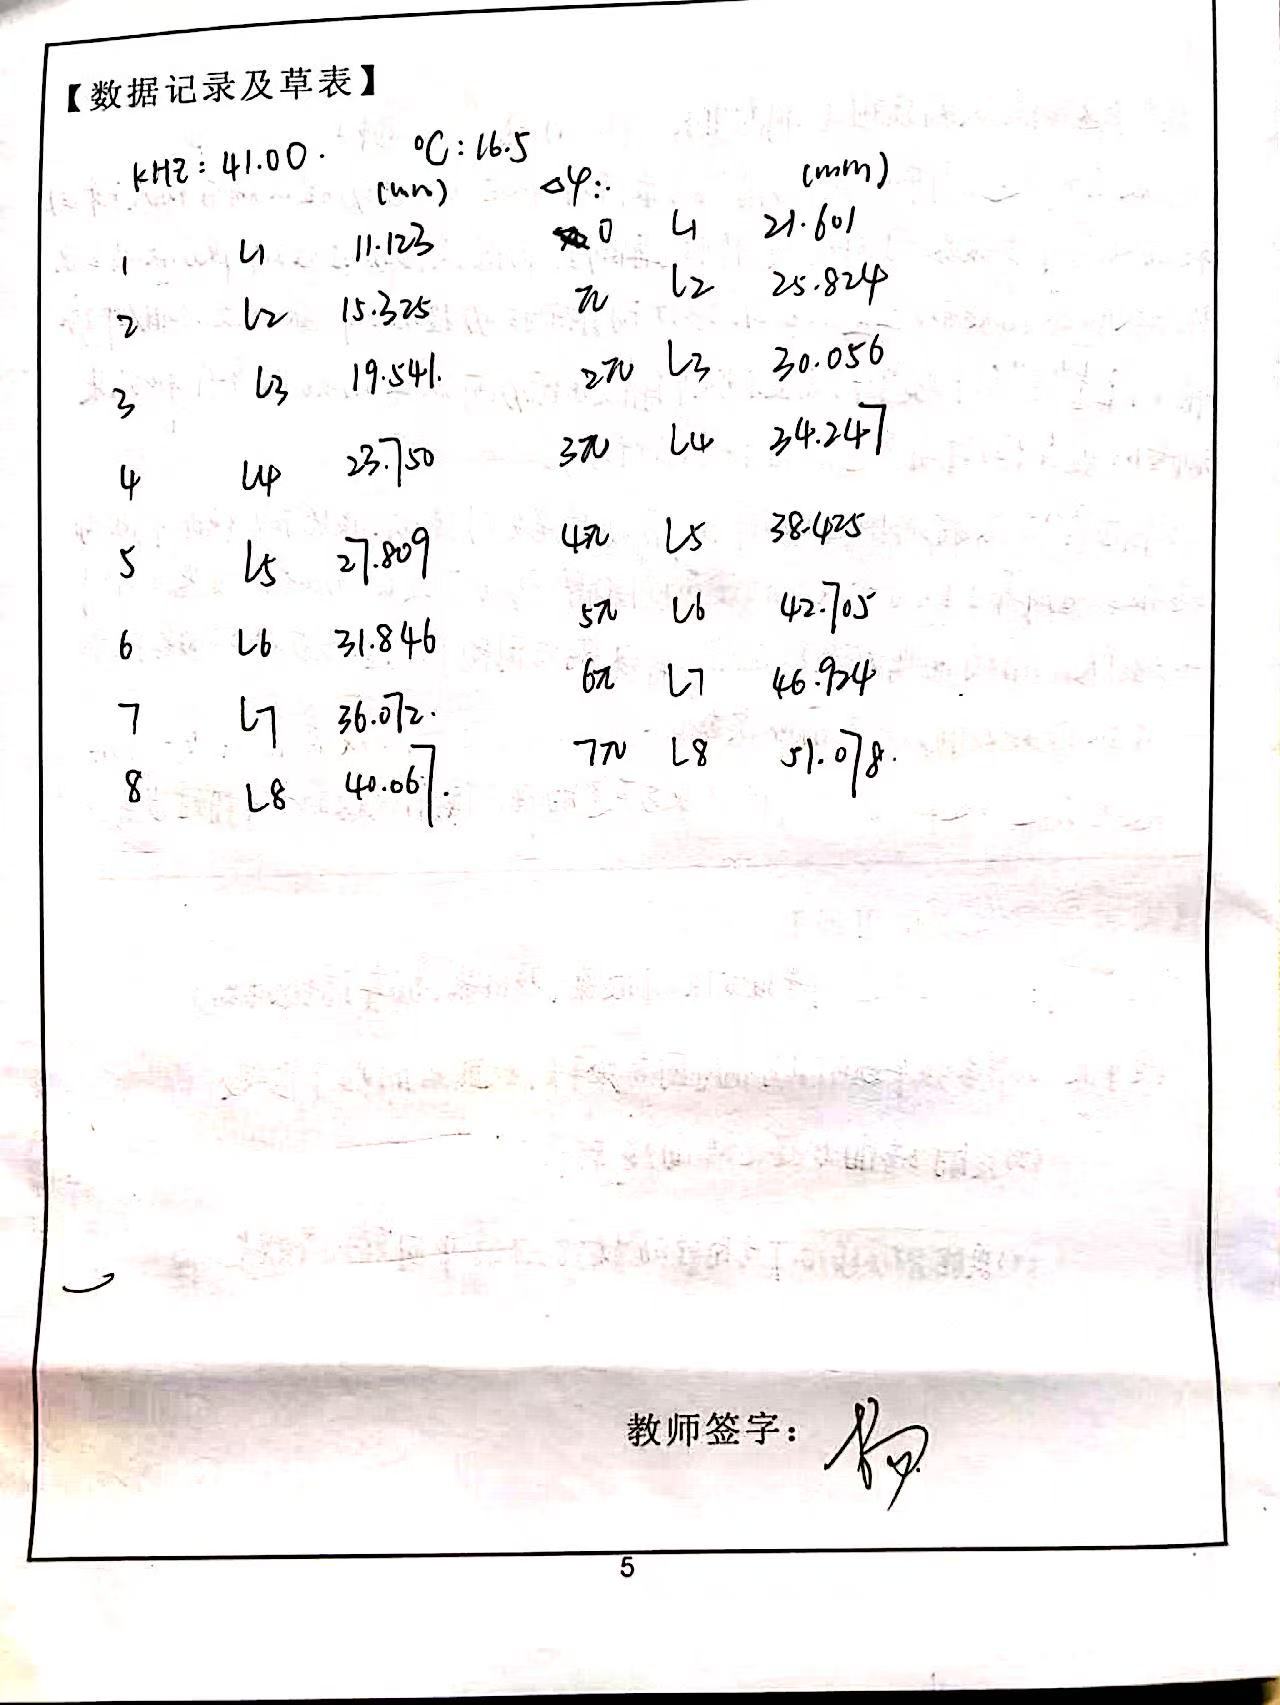 【数据记录及草表】
KHZ: 41.00. °C: 16.5
(mm) △φ: (mm)
1 L1 11.123 0 L1 21.601
2 L2 15.325 π L2 25.824
3 L3 19.541. 2π L3 30.056
4 L4 23.750 3π L4 34.247
5 L5 27.809 4π L5 38.425
6 L6 31.846 5π L6 42.705
7 L7 36.072. 6π L7 46.924
8 L8 40.067. 7π L8 51.078.
教师签字:
5